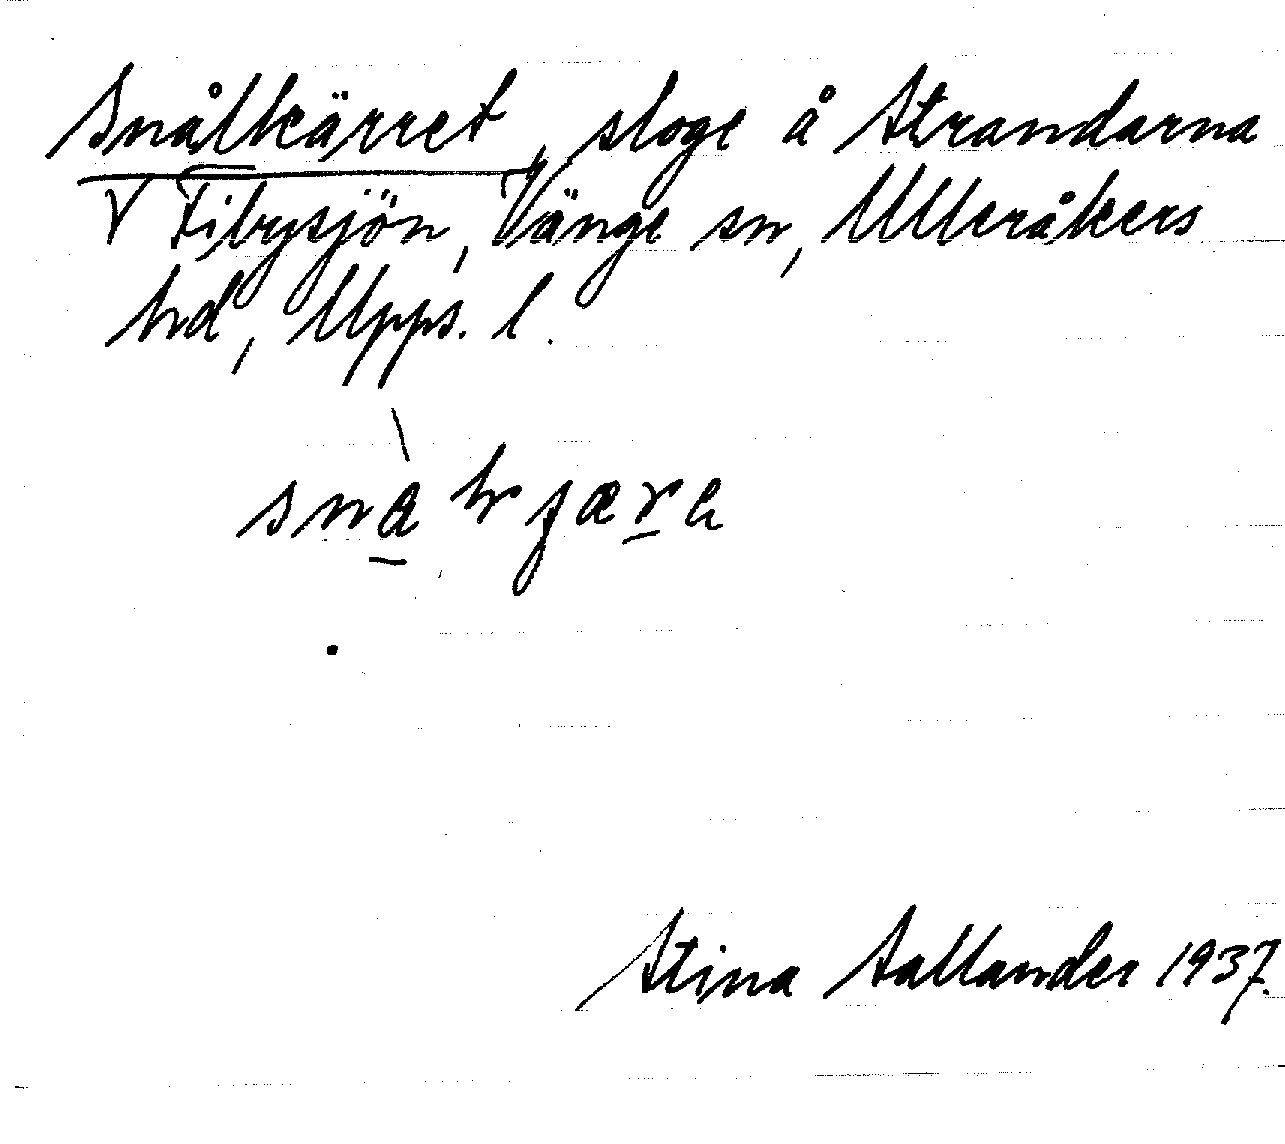 Snålkärret, sloge å Strandarna
V Fibysjön, Vänge sn, Ulleråkers
hd, Upps. l.
snàkjæra
Stina Sallander 1937.